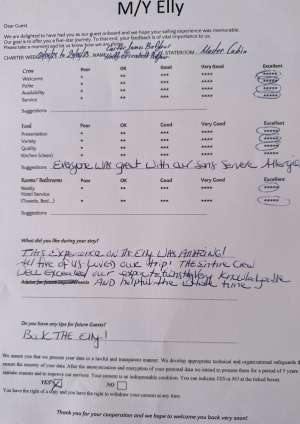 M/Y Elly
Dear Guest
We are delighted to have had you as our guest onboard and we hope your sailing experience was memorable.
Our goal is to offer you a five-star journey. To that end, your feedback is of vital importance to us.
Please take a moment and let us know how we
CHARTER WEEK NAME STATEROOM Master Cabin
Crew Poor OK Good Very Good Excellent
Welcome * ** *** **** *****
Polite * ** *** **** *****
Availability * ** *** **** *****
Service * ** *** **** *****
Suggestions
Food Poor OK Good Very Good Excellent
Presentation * ** *** **** *****
Variety * ** *** **** *****
Quality * ** *** **** *****
Kitchen (Asian) * ** *** **** *****
Suggestions Everyone was great with our sons severe Allergies
Rooms/ Bathrooms Poor OK Good Very Good Excellent
Neatly * ** *** **** *****
Hotel Service
(Towels, Bed...) * ** *** **** *****
Suggestions
What did you like during your stay?
This Experience on the Elly was AMAZING!
All five of us loved our trip! The entire crew
well exceeded our expectations Knowledgeable
AND helpful the whole time
Do you have any tips for future Guests?
Book THE Elly!
We assure you that we process your data in a lawful and transparent manner. We develop appropriate technical and organizational safeguards
ensure the security of your data. After the anonymization and encryption of your personal data we intend to process them for a period of 5 years
statistic reasons and to improve our services. Your consent is an indispensable condition. You can indicate YES or NO at the ticked boxes.
YES NO
You have the right of a copy and you have the right to withdraw your consent at any time.
Thank you for your cooperation and we hope to welcome you back very soon!